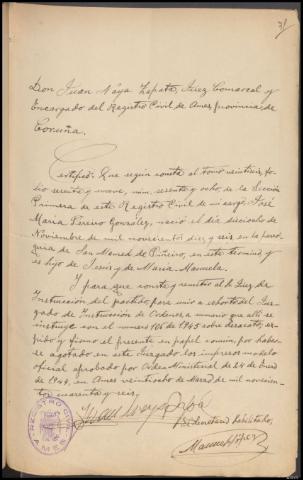 31
Don Juan Naya Zapata, Juez Comarcal y
Encargado del Registro Civil de Ames, provincia de
Coruña.
Certifico: Que según consta al tomo veintiseis, fo-
lio sesenta y nueve, núm. sesenta y ocho, de la Sección
Primera de este Registro Civil de mi cargo, José
Maria Pereiro González, nació el dia dieciocho de
Noviembre de mil novecientos diez y seis en la parro-
quia de San Mamed de Piñeiro, en este termino y
es hijo de Jesús y de Maria Manuela.
Y para que conste y remitir al Sr. Juez de
Instrucción del partido para unir a exhorto del Juz-
gado de Instrucción de Ordenes, a sumario que alli se
instruye con el numero 106 de 1945 sobre desacato, ex-
pido y firmo el presente en papel común, por haber-
se agotado en este Juzgado los impresos modelo
oficial aprobado por Orden Ministerial de 24 de Enero
de 1944, en Ames veintiocho de Marzo de mil novecien-
tos cuarenta y seis.
Juan Naya Zapata
El Secretario habilitado,
Manuel
REGISTRO CIVIL
AMES